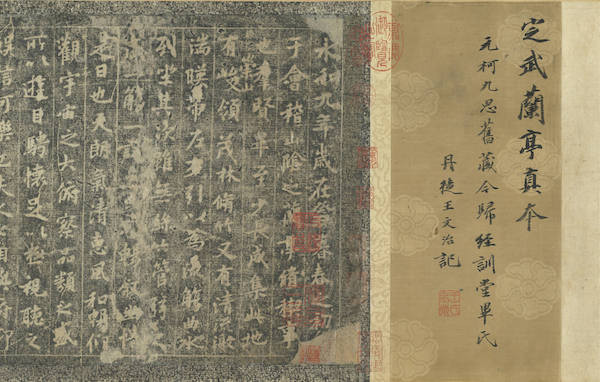 定武蘭亭真本
元柯九思舊藏今歸經訓堂畢氏
丹徒王文治記
永和九年歲在癸暮春之初
于會稽山陰之蘭亭脩稧事
也羣賢畢至少長咸集此地
崇山
有峻領茂林脩竹又有清流激
湍暎帶左右引以為流觴曲水
列坐其次雖無絲竹管弦之
盛一觴一詠暢敘幽情
是日也天朗氣清惠風和暢仰
觀宇宙之大俯察品類之盛
所以遊目騁懷足以極視聽之
娛信可樂也夫人之相與俯仰